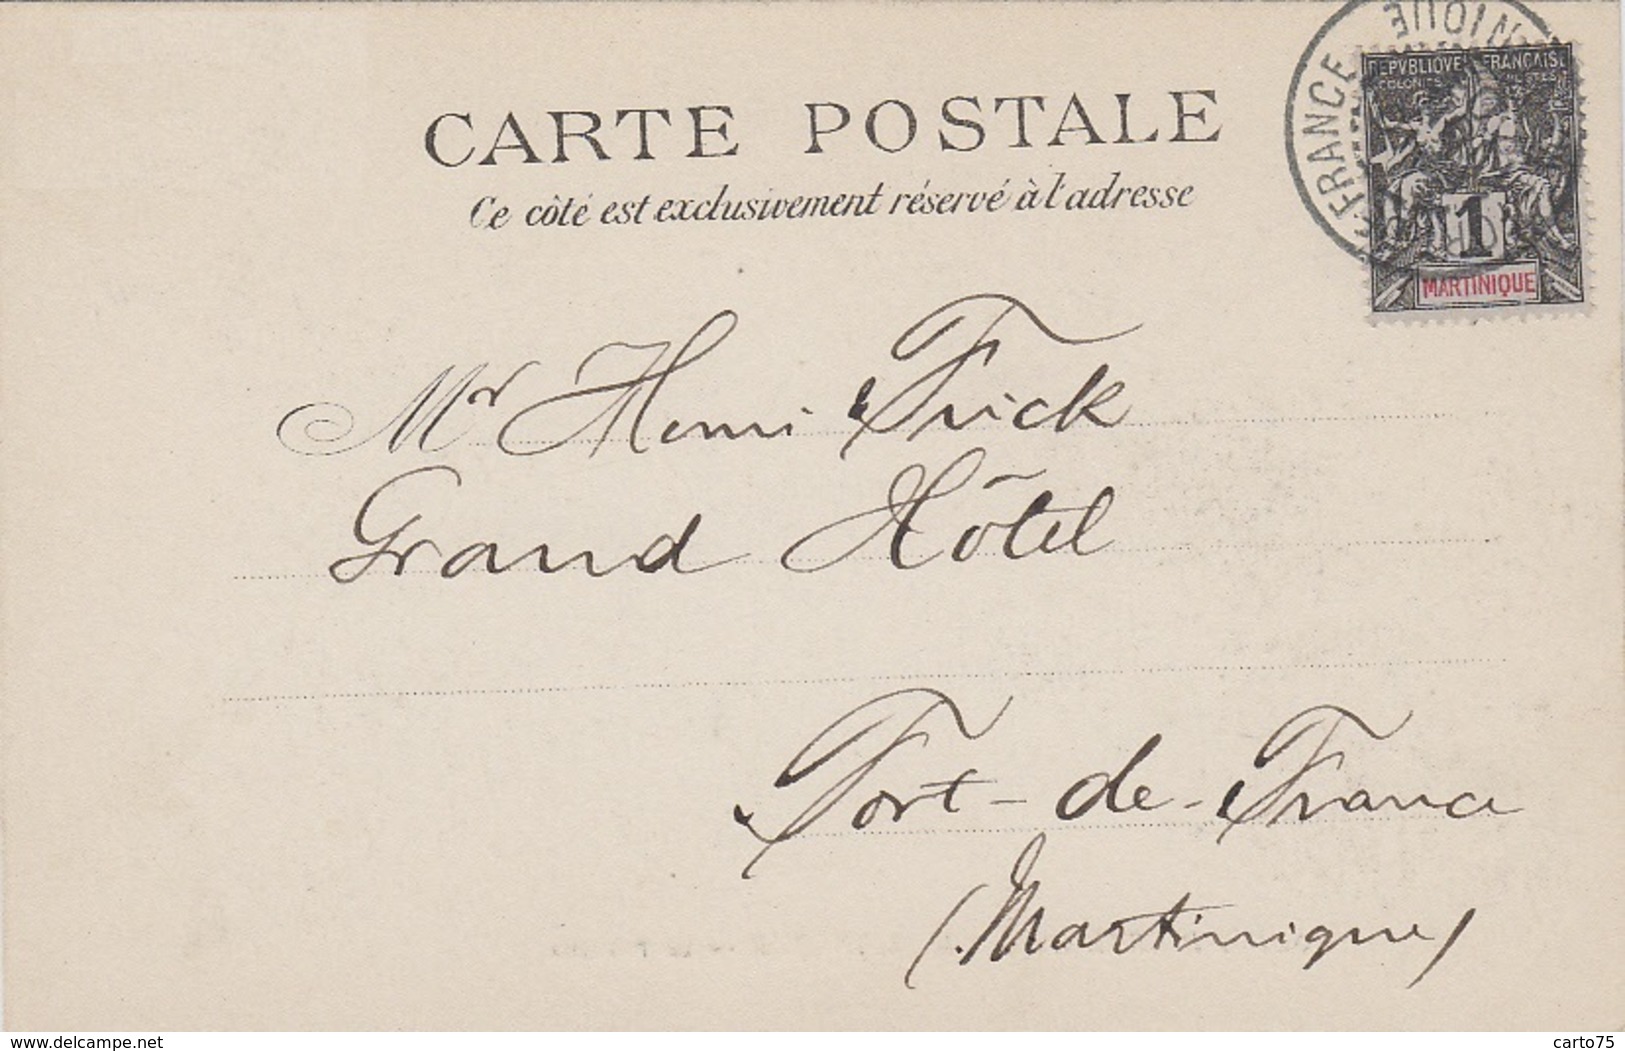 CARTE POSTALE
Ce côté est exclusivement réservé à l'adresse
REPVBLIQVE FRANÇAISE
COLONIES POSTES
1
MARTINIQUE
FRANCE
Mr Henri Frick
Grand Hôtel
Fort-de-France
(Martinique)
www.delcampe.net
carto75